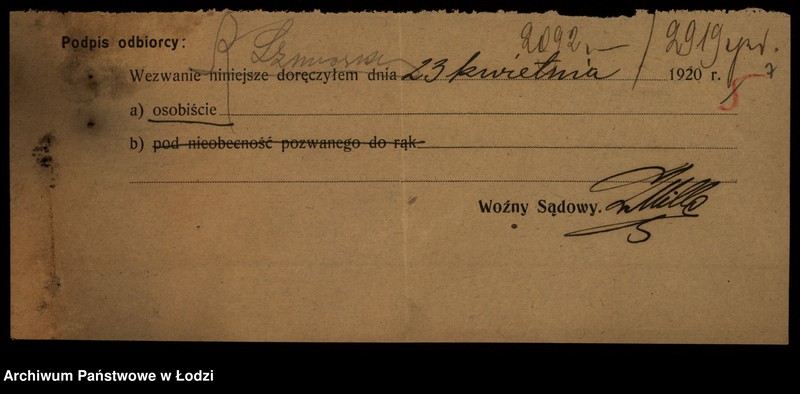 2092 / 2919
Podpis odbiorcy:
Wezwanie niniejsze doręczyłem dnia 23 kwietnia 1920 r.
5
a) osobiście
b) pod nieobecność pozwanego do rąk
Woźny Sądowy.
Archiwum Państwowe w Łodzi